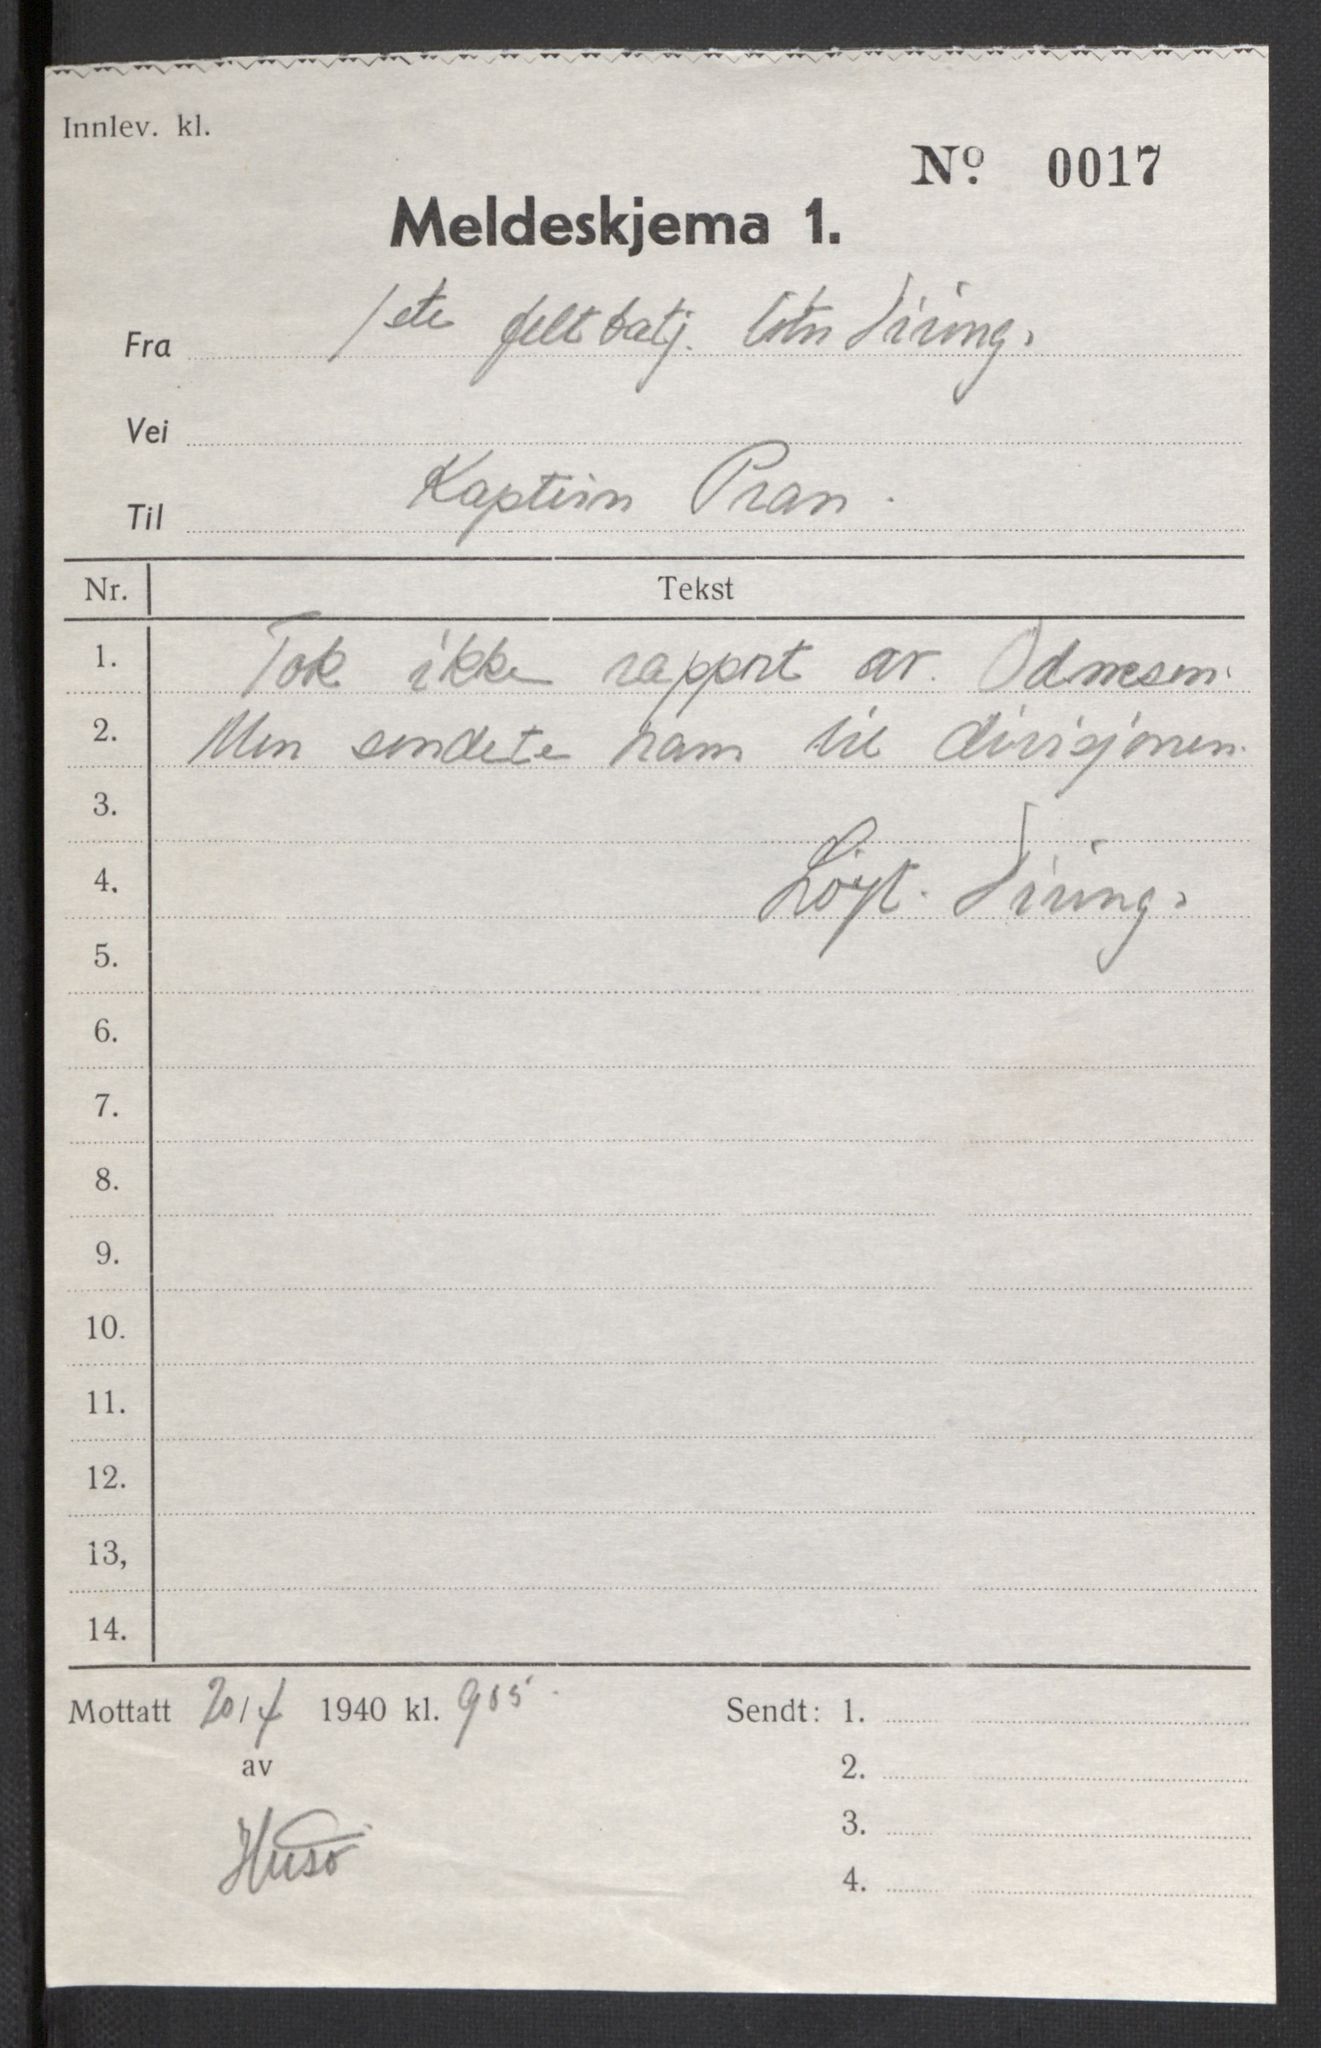 Innlev. kl.
No. 0017
Meldeskjema 1.
Fra 1ste feltbatj. Siring.
Vei
Til Kaptein Pran.
Nr. Tekst
1. Tok ikke rapport av. Odnesen.
2. Men sendete ham til divisjonen.
3.
4. Løyt. Siring.
5.
6.
7.
8.
9.
10.
11.
12.
13,
14.
Mottatt 20/4 1940 kl. 905 Sendt: 1.
av 2.
3.
Husø 4.